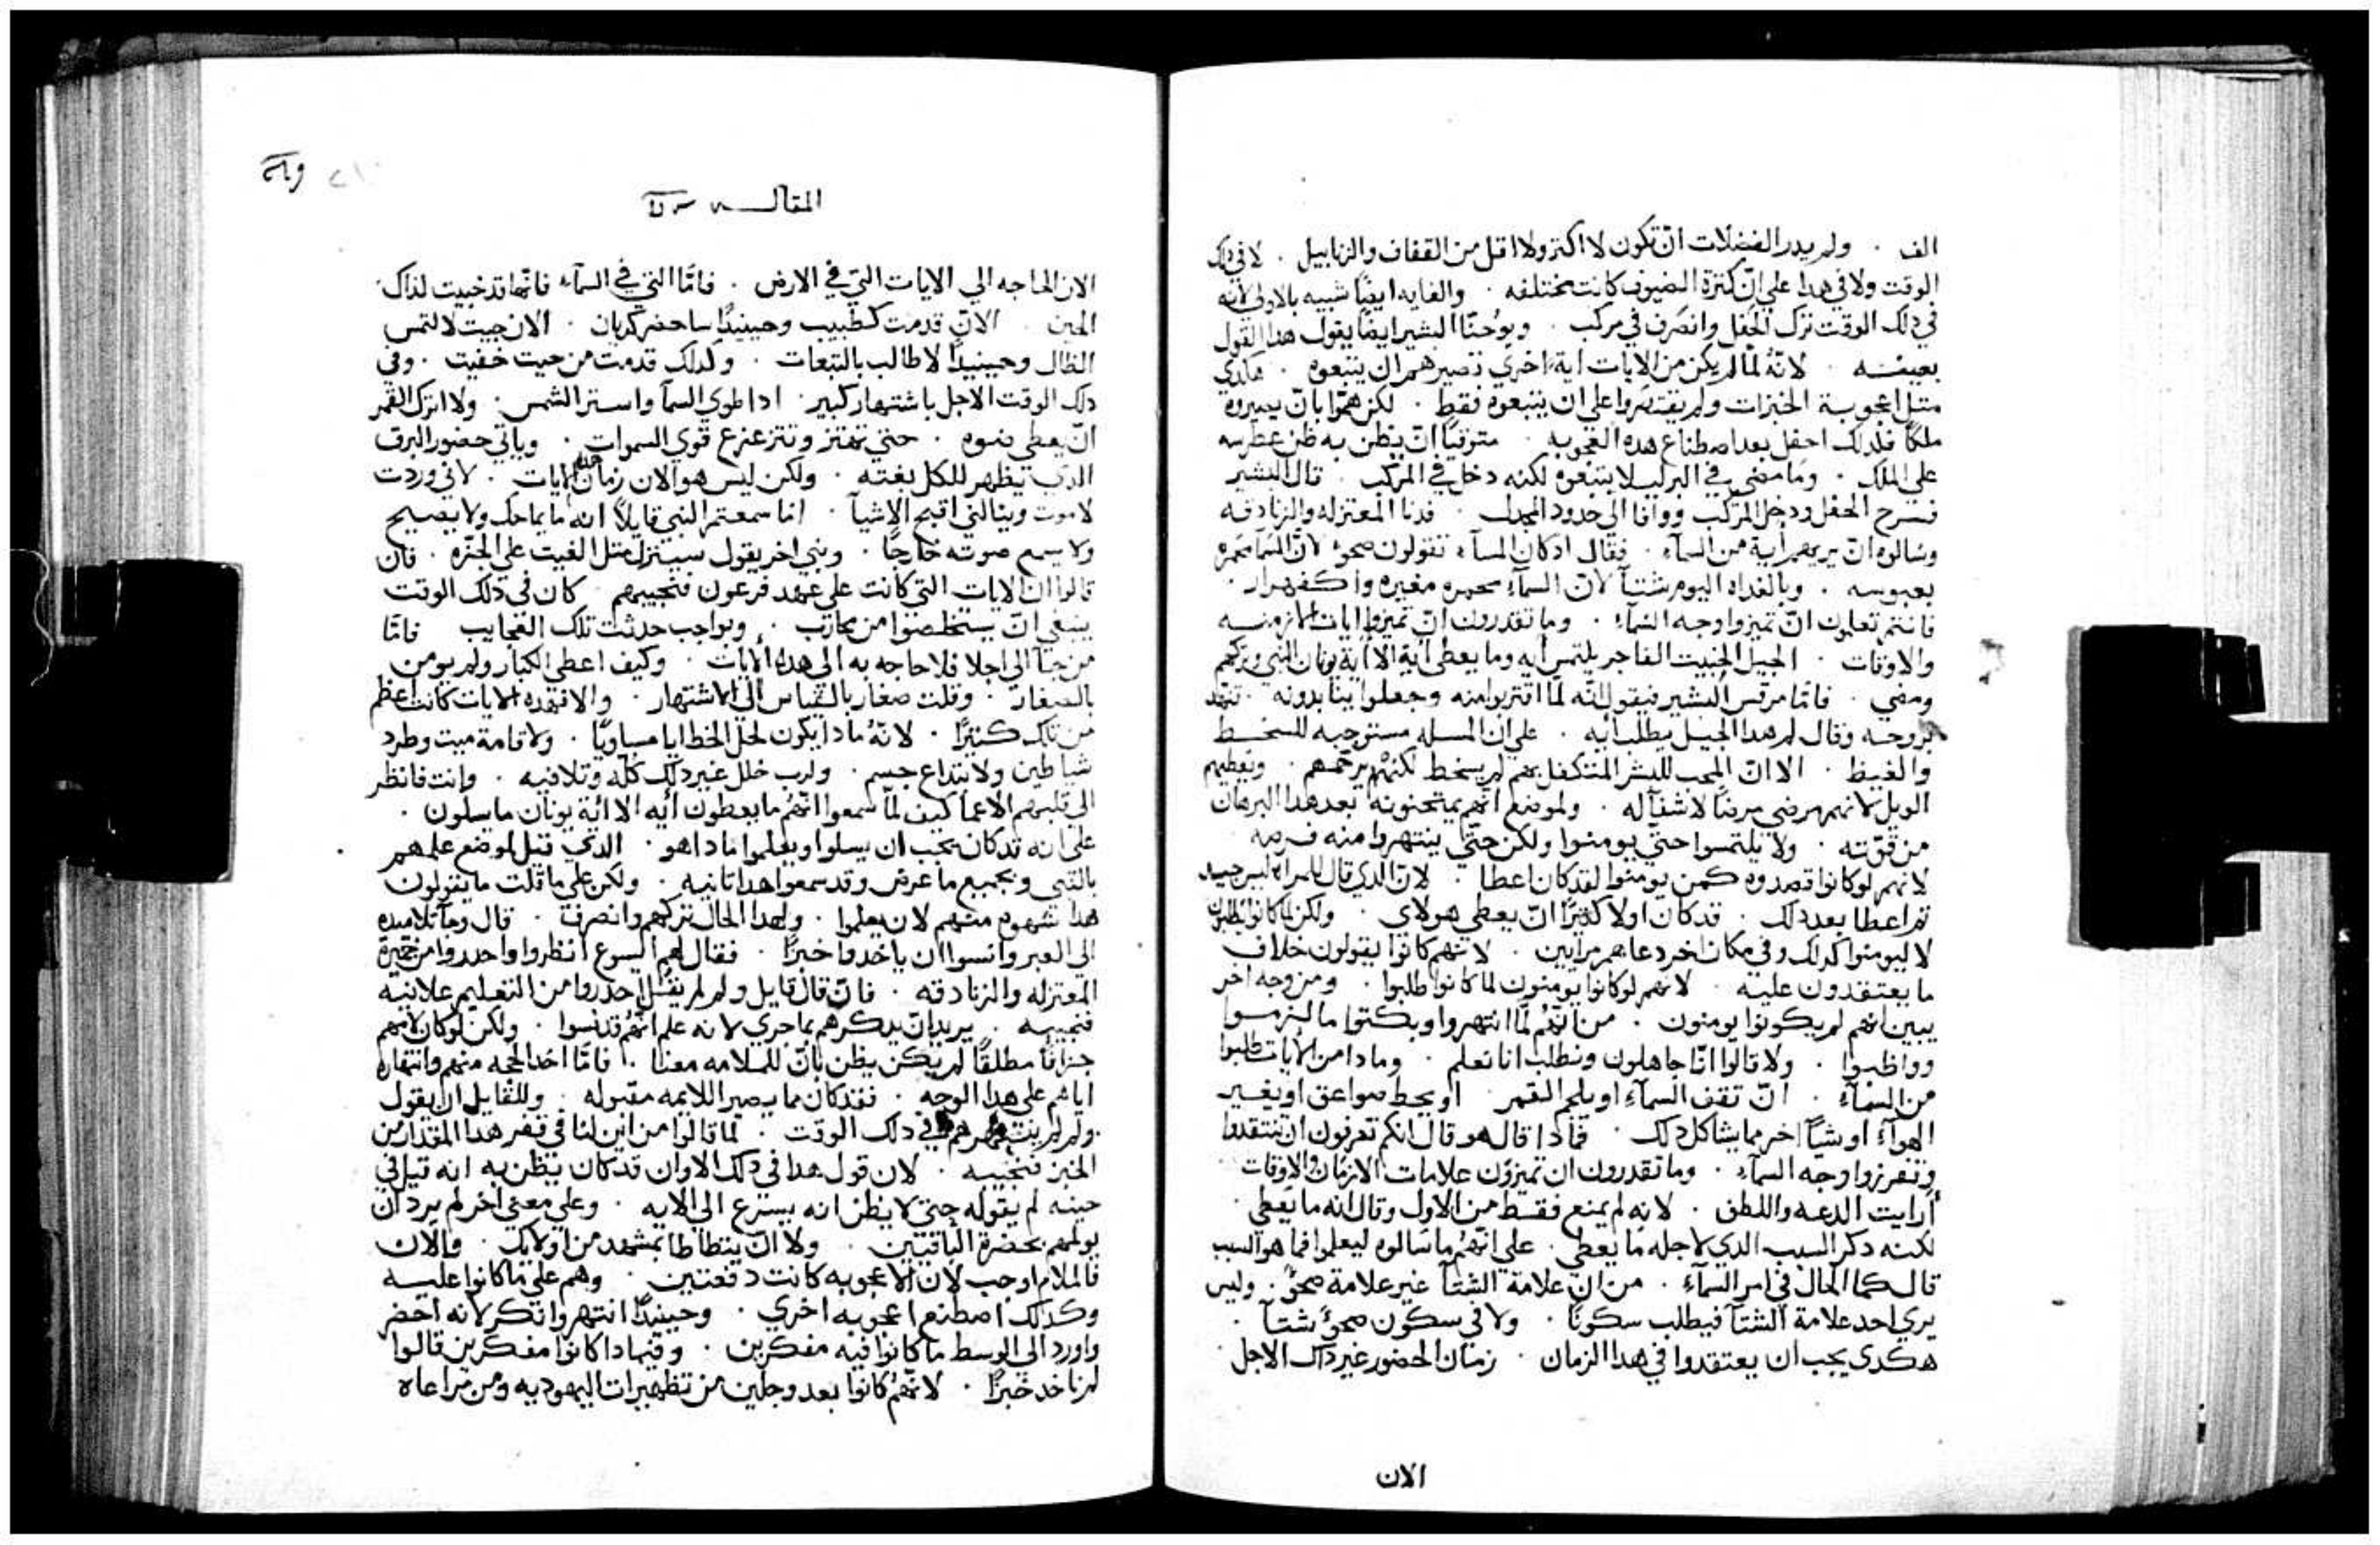 الف . ولم يدر الفضلات ان تكون لا اكتر ولا اقل من القفاف والزنابيل . لا في دلك
الوقت ولا في هدا علي ان كترة الضيوف كانت مختلفه . والغايه ايضًا شبيه بالاولي لانه
في دلك الوقت ترك الحفل وانصرف في مركب . ويوحنّا البشير ايضًا يقول هدا القول
بعينه . لانّهُ لمّا لم يكن من الايات اية اخري تصيرهم ان يتبعوه . هكدي
متل اعجوبة الخبزات ولم يقتصروا علي ان يتبعوه فقط . لكن همّوا بانّ يصيروه
ملكًا فلدلك احفل بعد اصطناع هده العجوبه . متوقيًا انّ يظن به ظن عطرسه
علي الملك . وما مضي في البر ليلا يتبعوه لكنه دخل في المركب . قال البشير
فسرح الحفل ودخل المركب ووافا الي حدود المجدل . فدنا المعتزله والزنادقه
وسالوه انّ يريهم اية من السمآء . فقال ادكان المسآء تقولون صحوًا لانّ السّمآ محمره
بعبوسه . وبالغداه اليوم شتآ لانّ السمآء محمره مغبره واكفهرار .
فانتم تعلمون انّ تميزوا وجه السمآء . وما تقدرون انّ تميزوا ايات الازمنه
والاوقات . الجيل الخبيت الفاجر يلتمس ايه وما يعطي اية الا اية يونان النبي وتركهم
ومضي . فامّا مرقس البشير فيقول انّه لمّا اقتربوا منه وجعلوا يناىدونه . تنهد
بروحه وقال لم هدا الجيل يطلب ايه . علي ان المسله مستوجبه للسخط
والغيظ . الا انّ المحب للبشر المتكفل بهم لم يسخط لكنهُ يرحمهم . ويعطيهم
الويل لانهم مرضي مرضًا لا شفآ له . ولموضع انّهم يمتحنونه بعد هدا البرهان
من قوّته . ولا يلتمسوا حتي يومنوا ولكن حتّي ينتهروا منه فرصه
لانهم لو كانوا قصدوه كمن يومنوا لقد كان اعطا . لانّ الدي قال للمراه ليس جيد
تم اعطا بعد دلك . قد كان اولا كتيرًا انّ يعطي هولاي . ولكن لما كانوا يطلبون
لا ليومنوا كدلك وفي مكان اخر دعاهم مرايين . لانهم كانوا يقولون خلاف
ما يعتقدون عليه . لانهم لو كانوا يومنون لما كانوا طلبوا . ومن وجه اخر
يبين انهم لم يكونوا يومنون . من انّهم لمّا انتهروا وبكتوا ما لزموا
وواظبوا . ولا قالوا انّا جاهلون ونطلب انا نعلم . ومادا من الايات طلبوا
من السمآء . انّ تقف السمآء او يلجم القمر او يحط صواعق او يغير
الهوآء او شيًا اخر مما يشاكل دلك . فمادا قال هو قال انكم تعرفون ان تنتقدوا
وتفرزوا وجه السمآء . وما تقدرون ان تميزون علامات الازمان والاوقات
أرايت الدعه واللطف . لانه لم يمنع فقط من الاول وقال انه ما يعطي .
لكنه دكر السبب الدي لاجله ما يعطي . علي انّهُم ما سالوه ليعلموا فما هو السبب
قال كما الحال في امر السمآء . من انّ علامة الشتآ غير علامة صحوٌ . وليس
يري احد علامة الشتآ فيطلب سكونًا . ولا في سكون صحوٌ شتآ .
هكدي يجب ان يعتقدوا في هدا الزمان . زمان الحضور غير داك الاجل
الان
المقالـــه
الان الحاجه الي الايات التي في الارض . فامّا التي في السمآء فانّها قد خبيت لداك
الحين . الانّ قدمت كطبيب وحينيدًا ساحضر كديان . الان جيت لالتمس
الظال وحينيدًا لاطالب بالتبعات . ولدلك قدمت من حيت خفيت . وفي
دلك الوقت الاجل باشتهار كبير . ادا طوي السمآ واستر الشمس . ولا اترك القمر
انّ يعطي ضوه . حتي تهتز وتتزعزع قوي السموات . وياتي حضور البرق
الدي يظهر للكل بغته . ولكن ليس هو الان زمان هده الايات . لاني وردت
لاموت وينالني اقبح الاشيآ . اما سمعتم النبي قايلاً انه ما يماحك ولا يصيح
ولا يسمع صوته خارجًا . ونبي اخر يقول سينزل متل الغيت علي الجزّه . فان
قالوا ان الايات التي كانت علي عهد فرعون فنجيبهم كان في دلك الوقت
ينبغي انّ يستخلصوا من محارب . وبواجب حدتت تلك العجايب فامّا
من جآ الي اجلا فلا حاجه به الي هده الايات . وكيف اعطي الكبار ولم يومن
بالصغار . وقلت صغار بالقياس الي الاشتهار . والا فهده الايات كانت اعظم
من تلك كتيرًا . لانّهُ مادا يكون لحل الخطايا مساويًا . ولاقامة ميت وطرد
شياطين ولابتداع جسم . ولرب خلل غير دلك كلّه وتلافيه . وانت فانظر
الي قلبهم الاعما كيف لمّا سمعوا انّهُم ما يعطون ايه الا اية يونان ما سلون .
علي انه قد كان يجب ان يسلوا ويعلموا مادا هو . الدي قبل لموضع علمهم
بالنبي وبجميع ما عرض وقد سمعوا هدا تانيه . ولكن علي ما قلت ما يقولون
هدا شهوه منهم لان يعلموا . ولهدا الحال تركهم وانصرف . قال وجآ تلاميده
الي العبر وانسوا ان ياخدوا خبزًا . فقال لهم اليسوع انظروا واحدروا من خميرة
المعتزله والزنادقه . فانّ قال قايل ولم لم يقُل احدروا من التعليم علانيه
فنجيبه . يريد انّ يدكرهم بما جري لانه علم انّهُم قد نسوا . ولكن لو كان لامهم
جزافًا مطلقًا لم يكن يظن بانّ للملامه معنا . فامّا اخد الحجه منهم وانتهاره
اياهم علي هدا الوجه . فقد كان مما يصير اللايمه مقبوله . وللقايل ان يقول
ولم لم ينتهرهم في دلك الوقت . لما قالوا من اين لنا في قفر هدا المقدار من
الخبز فنجيبه . لان قول هدا في دلك الاوان قد كان يظن به انه قيل في
حينه لم يقوله حتي لا يظن انه يسرع الي الايه . وعلي معني اخر لم يرد انّ
يولمهم بحضرة الباقيين . ولا انّ يتطاطا بمشهد من اولايك . والان
فالملام اوجب لان الاعجوبه كانت دفعتين . وهم علي ما كانوا عليه
وكدلك اصطنع اعجوبه اخري . وحينيدًا انتهر وانكر لانه احضر
واورد الي الوسط ما كانوا فيه مفكرين . وفيمادا كانوا مفكرين قالوا
لم ناخد خبزًا . لانّهُم كانوا بعد وجلين من تطهيرات اليهوديه ومن مراعاه